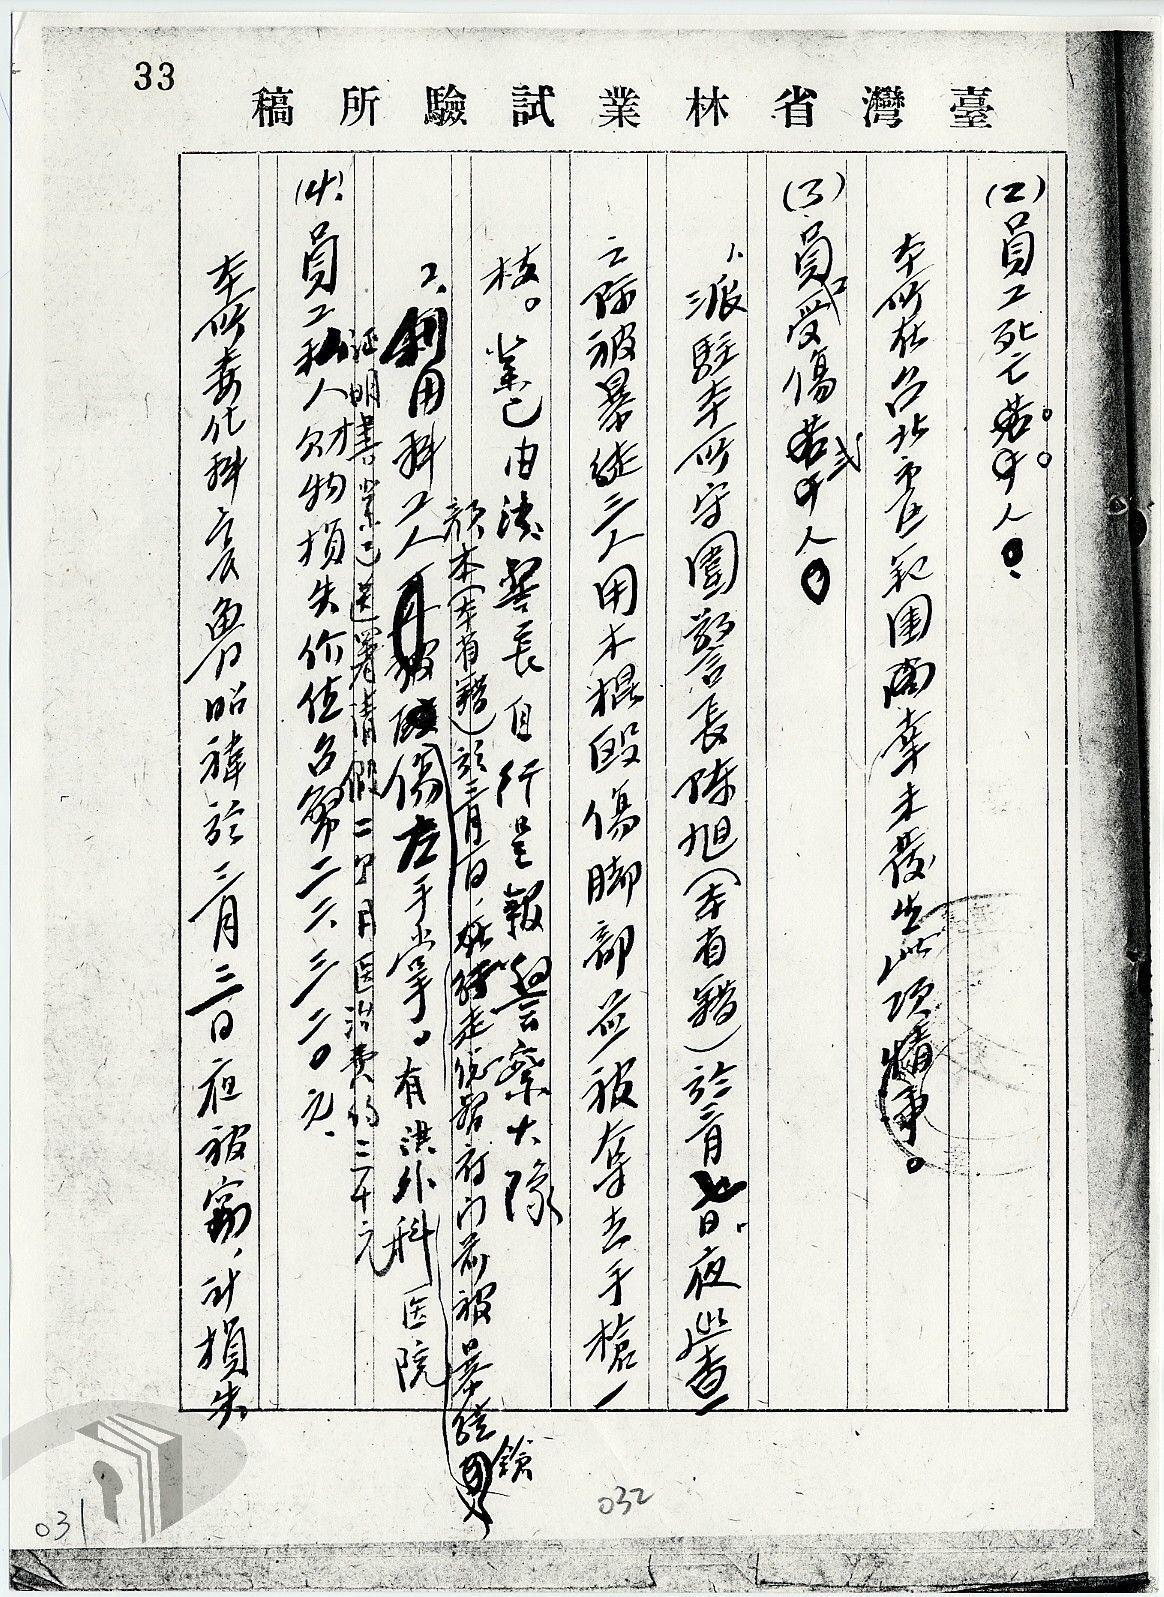 33
臺灣省林業試驗所稿
(2)員工死亡若干人。
本所在台北市區範圍內幸未發生此項情事。
(3)員工受傷若干人
1、派駐本所守園警長陳旭(本省籍)於三月七日夜巡查
之際被暴徒三人用木棍毆傷脚部並被奪去手槍一
枝。業已由該警長自行呈報警察大隊
顏木(本省籍)於三月一日，
走經署府門前被暴徒
鎗
2、利用科工人
被
傷左手掌。有洪外科医院
証明書。業已送署請假二個月医治費約二千元
(4)員工私人財物損失价值台幣二六三二〇元。
本所委化科
魯昭禕於三月三日夜被竊，計損失
031
032